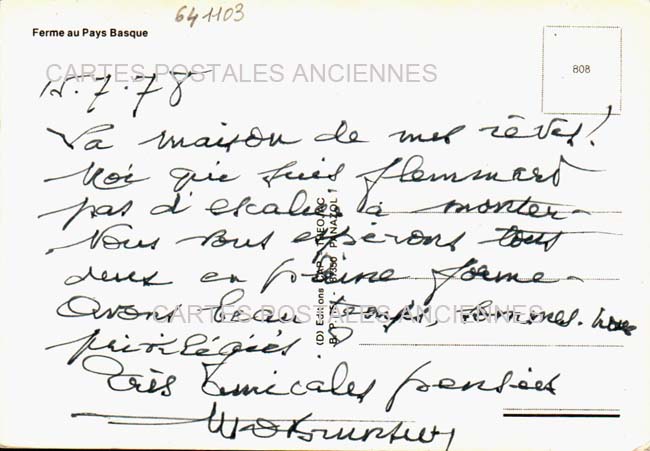 641103
Ferme au Pays Basque
CARTES POSTALES ANCIENNES
808
15.7.78
La maison de mes rêves!
Moi qui suis flemmard
pas d'escalier à monter.
Nous vous espérons tous
deux en pleine forme.
Avons beau temps, sommes-nous
privilégiés?
Très amicales pensées
(D) Editions CAP-THEOJAC
B.P. 51 - 87350 PANAZOL
CARTES POSTALES ANCIENNES